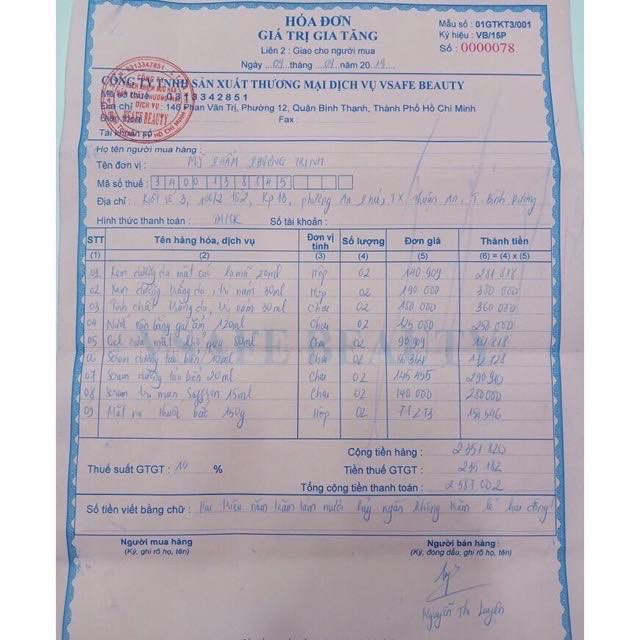 HÓA ĐƠN
GIÁ TRỊ GIA TĂNG
Liên 2 : Giao cho người mua
Ngày 09 tháng 09 năm 2019
Mẫu số : 01GTKT3/001
Ký hiệu : VB/15P
Số : 0000078
CÔNG TY TNHH SẢN XUẤT THƯƠNG MẠI DỊCH VỤ VSAFE BEAUTY
Mã số thuế : 0313342851
Địa chỉ : 146 Phan Văn Trị, Phường 12, Quận Bình Thạnh, Thành Phố Hồ Chí Minh
Fax :
Tài khoản số
Họ tên người mua hàng :
Tên đơn vị : MỸ PHẨM PHƯƠNG TRINH
Mã số thuế : 3400138145
Địa chỉ : phường An Phú, TX Thuận An, T. Bình Dương
Hình thức thanh toán : TM/CK Số tài khoản :
STT Tên hàng hóa, dịch vụ Đơn vị tính Số lượng Đơn giá Thành tiền
(1) (2) (3) (4) (5) (6) = (4) x (5)
01 Kem dưỡng da mặt 20ml Hộp 02 140 909 281 818
02 Kem dưỡng trắng da, trị nám 30ml Hộp 02 190 000 380 000
03 Tinh chất trắng da, trị nám 30ml Chai 02 180 000 360 000
04 Nước 120ml Chai 02 125 000 250 000
05 Gel rửa mặt 02 90 909 181 818
06 Serum dưỡng tảo biển 10ml Chai 02 86 364 172 728
07 Serum dưỡng tảo biển 20ml Chai 02 145 455 290 910
08 Serum trị mụn Saffron 15ml Chai 02 140 000 280 000
09 Mặt nạ thuốc bắc 150g Hộp 02 77 273 154 546
VSAFE BEAUTY
Cộng tiền hàng : 2 351 820
Thuế suất GTGT : 10 % Tiền thuế GTGT : 235 182
Tổng cộng tiền thanh toán : 2 587 002
Số tiền viết bằng chữ : Hai triệu năm trăm tám mươi bảy ngàn không trăm lẻ hai đồng
Người mua hàng
(Ký, ghi rõ họ, tên)
Người bán hàng
(Ký, đóng dấu, ghi rõ họ, tên)
Nguyễn Thị Luyến